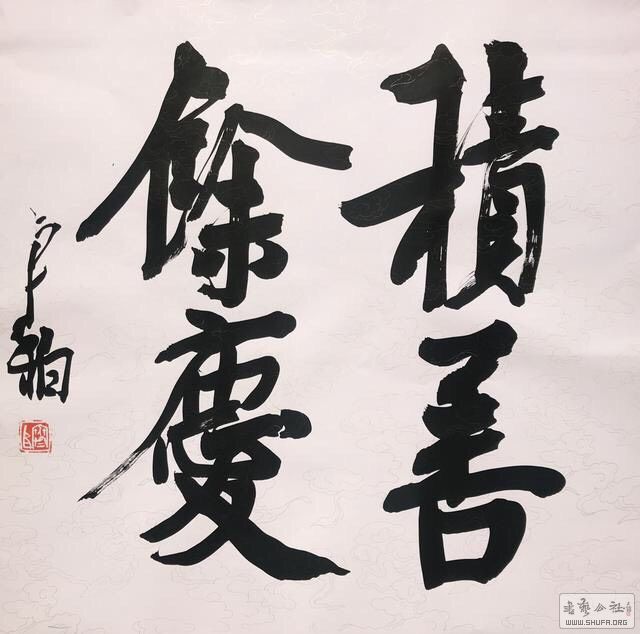 積善
餘慶
書藝公社
WWW.SHUFA.ORG